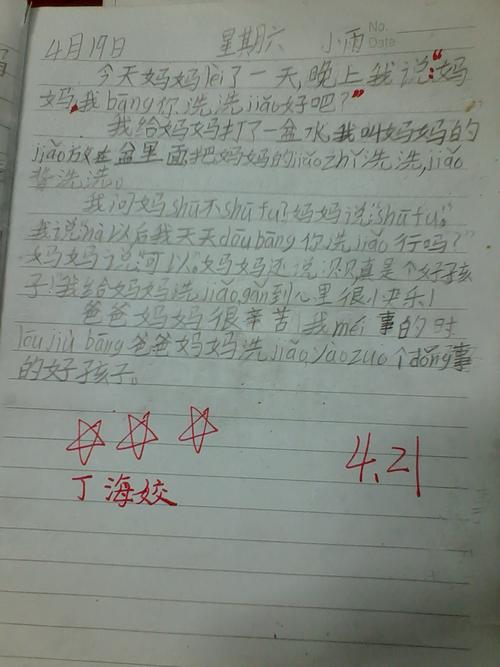 No.
Date
4月19日 星期六 小雨
今天妈妈lèi了一天,晚上我说:“妈
妈,我bāng你洗洗jiǎo好吧?”
我给妈妈打了一盆水,我叫妈妈的
jiǎo放在盆里面,把妈妈的jiǎozhǐ洗洗,jiǎo
背洗洗。
我问妈shū不shūfu?妈妈说“shūfu”。
我说“nà以后我天天dōubāng你洗jiǎo行吗?”
妈妈说“可以。”妈妈还说:贝贝真是个好孩
子!我给妈妈洗jiǎo,gǎn到心里很快乐!
爸爸妈妈很辛苦,我méi事的时
1óu jiù bāng爸爸妈妈洗jiǎo,yào zuo个dǒng事
的好孩子。
丁海姣
4.21